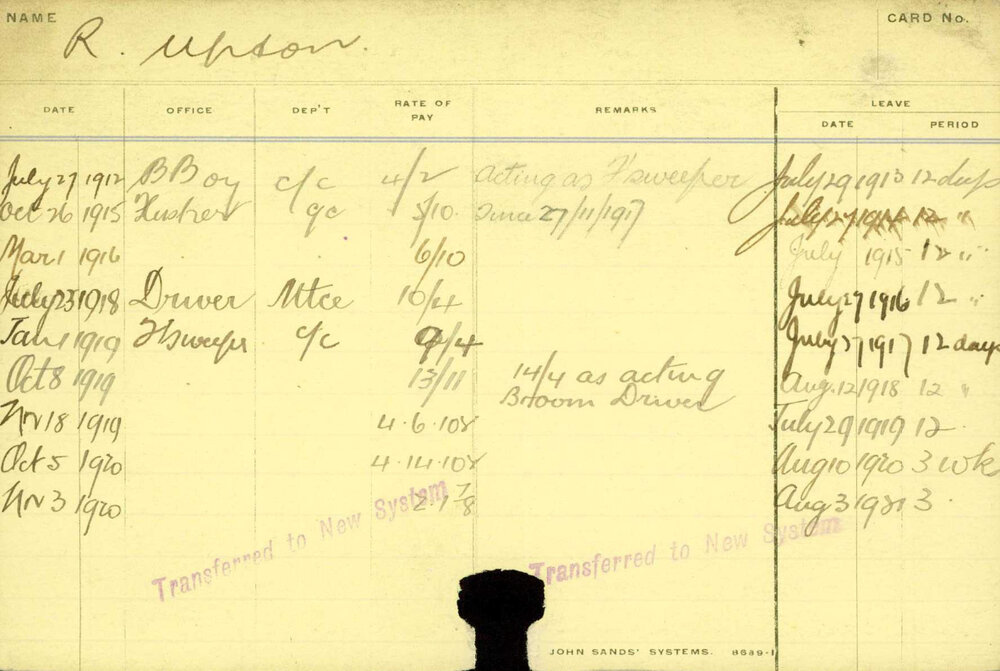 NAME
CARD No.
R. Upton.
DATE OFFICE DEP'T RATE OF PAY REMARKS LEAVE
DATE PERIOD
July 27 1912 BBoy c/c 4/2 Acting as F'sweeper July 29 1913 12 days
Oct 26 1915 c/c 5/10 Since 27/11/1917 July 27 1914 12 "
Mar 1 1916 6/10 July 1915 12 "
July 23 1918 Driver Mtce 10/4 July 27 1916 12 "
Jan 1 1919 F'sweeper c/c 9/4 July 27 1917 12 days
Oct 8 1919 13/11 14/4 as acting Aug. 12 1918 12 "
Broom Driver
Nov 18 1919 4.6.10 July 29 1919 12.
Oct 5 1920 4.14.10 Aug 10 1920 3 wk
Nov 3 1920 Aug 3 1921 3.
Transferred to New System
Transferred to New System
JOHN SANDS' SYSTEMS. 8689-1